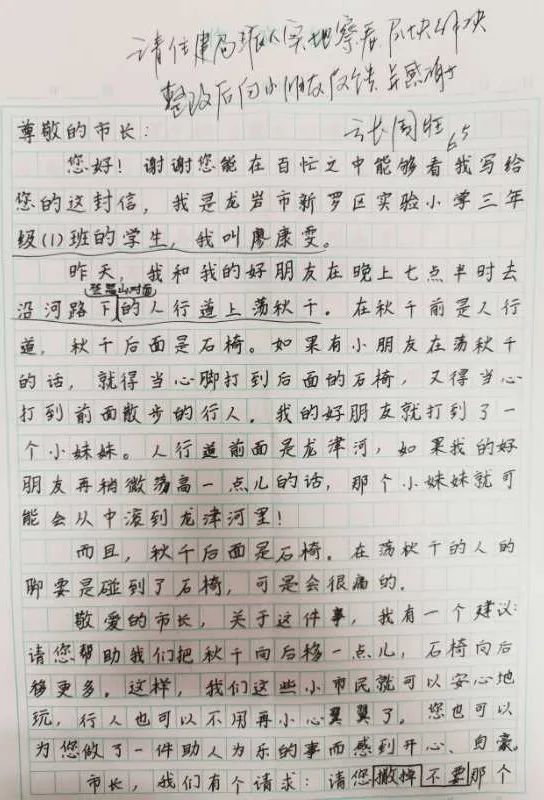 请住建局派人实地察看、尽快解决
整改后向小朋友反馈并感谢
6.5
尊敬的市长：
您好！谢谢您能在百忙之中能够看我写给
您的这封信，我是龙岩市新罗区实验小学三年
级(1)班的学生，我叫廖康雯。
昨天，我和我的好朋友在晚上七点半时去
沿河路下的人行道上荡秋千。在秋千前是人行
道，秋千后面是石椅。如果有小朋友在荡秋千
的话，就得当心脚打到后面的石椅，又得当心
打到前面散步的行人。我的好朋友就打到了一
个小妹妹。人行道前面是龙津河，如果我的好
朋友再稍微荡高一点儿的话，那个小妹妹就可
能会从中滚到龙津河里！
而且，秋千后面是石椅。在荡秋千的人的
脚要是碰到了石椅，可是会很痛的。
敬爱的市长，关于这件事，我有一个建议：
请您帮助我们把秋千向后移一点儿，石椅向后
移更多。这样，我们这些小市民就可以安心地
玩，行人也可以不用再小心翼翼了。您也可以
为您做了一件助人为乐的事而感到开心、自豪。
市长，我们有个请求：请您撤掉不要那个